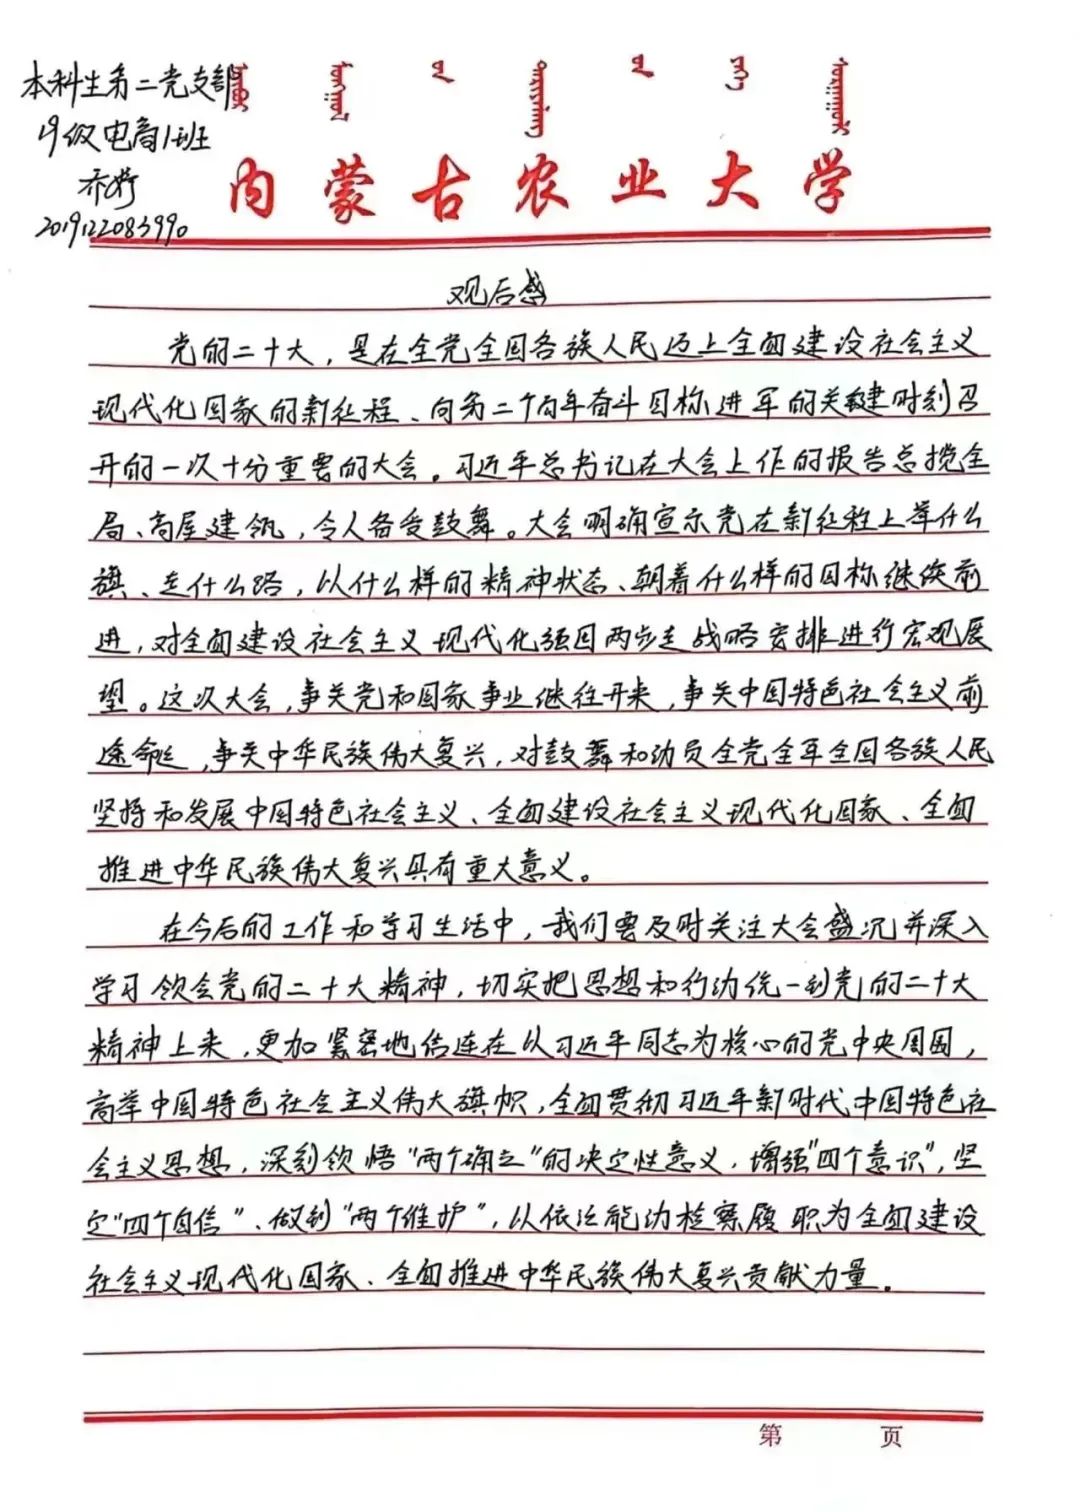 本科生第二党支部
19级电商1班
乔娇
内蒙古农业大学
观后感
党的二十大，是在全党全国各族人民迈上全面建设社会主义
现代化国家的新征程、向第二个百年奋斗目标进军的关键时刻召
开的一次十分重要的大会。习近平总书记在大会上作的报告总揽全
局、高屋建瓴，令人备受鼓舞。大会明确宣示党在新征程上举什么
旗、走什么路，以什么样的精神状态、朝着什么样的目标继续前
进，对全面建设社会主义现代化强国两步走战略安排进行宏观展
望。这次大会，事关党和国家事业继往开来，事关中国特色社会主义前
途命运，事关中华民族伟大复兴，对鼓舞和动员全党全军全国各族人民
坚持和发展中国特色社会主义、全面建设社会主义现代化国家、全面
推进中华民族伟大复兴具有重大意义。
在今后的工作和学习生活中，我们要及时关注大会盛况并深入
学习领会党的二十大精神，切实把思想和行动统一到党的二十大
精神上来，更加紧密地团结在以习近平同志为核心的党中央周围，
高举中国特色社会主义伟大旗帜，全面贯彻习近平新时代中国特色社
会主义思想，深刻领悟“两个确立”的决定性意义，增强“四个意识”，坚
定“四个自信”、做到“两个维护”，以依法能动检察履职为全面建设
社会主义现代化国家、全面推进中华民族伟大复兴贡献力量。
第 页